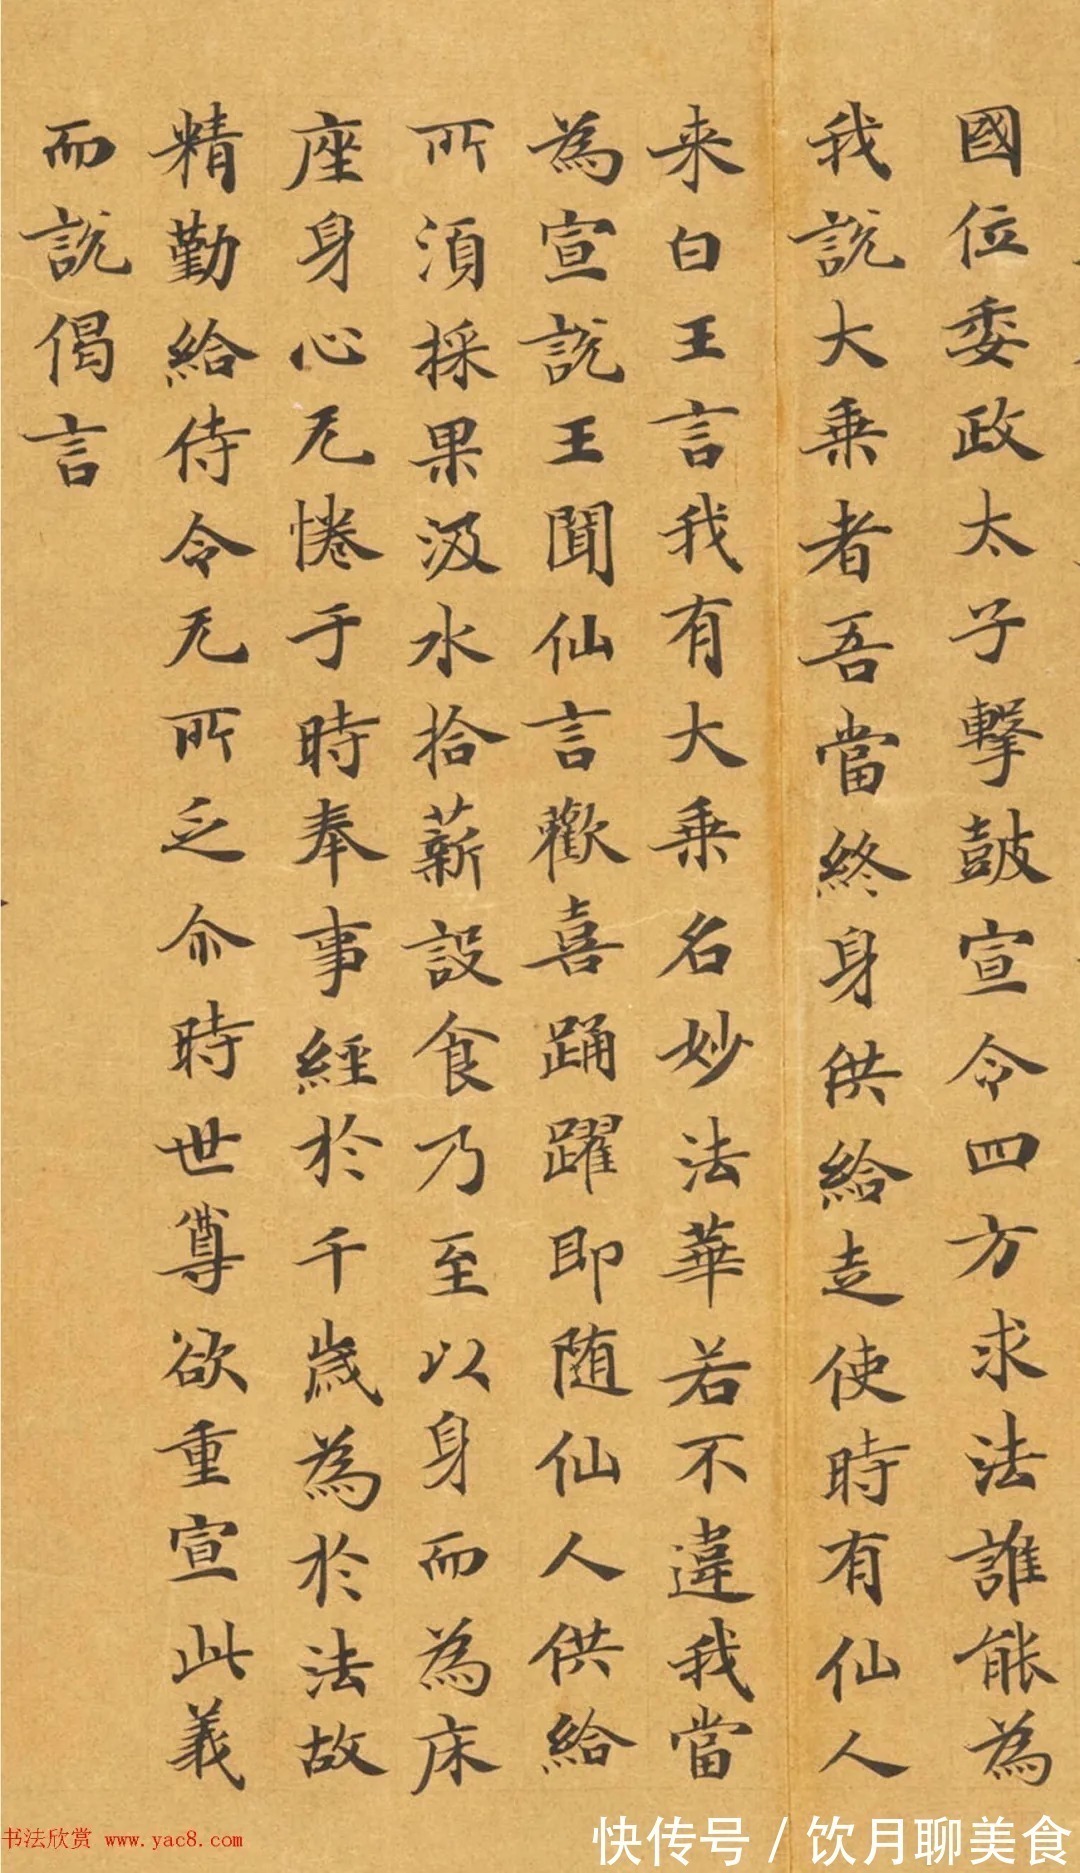 國位委政太子擊鼓宣令四方求法誰能為
我說大乘者吾當終身供給走使時有仙人
来白王言我有大乘名妙法華若不違我當
為宣說王聞仙言歡喜踊躍即随仙人供給
所須採果汲水拾薪設食乃至以身而為床
座身心无惓于時奉事經於千歲為於法故
精勤給侍令无所乏尒時世尊欲重宣此義
而說偈言
书法欣赏 www.yac8.com
快传号/饮月聊美食